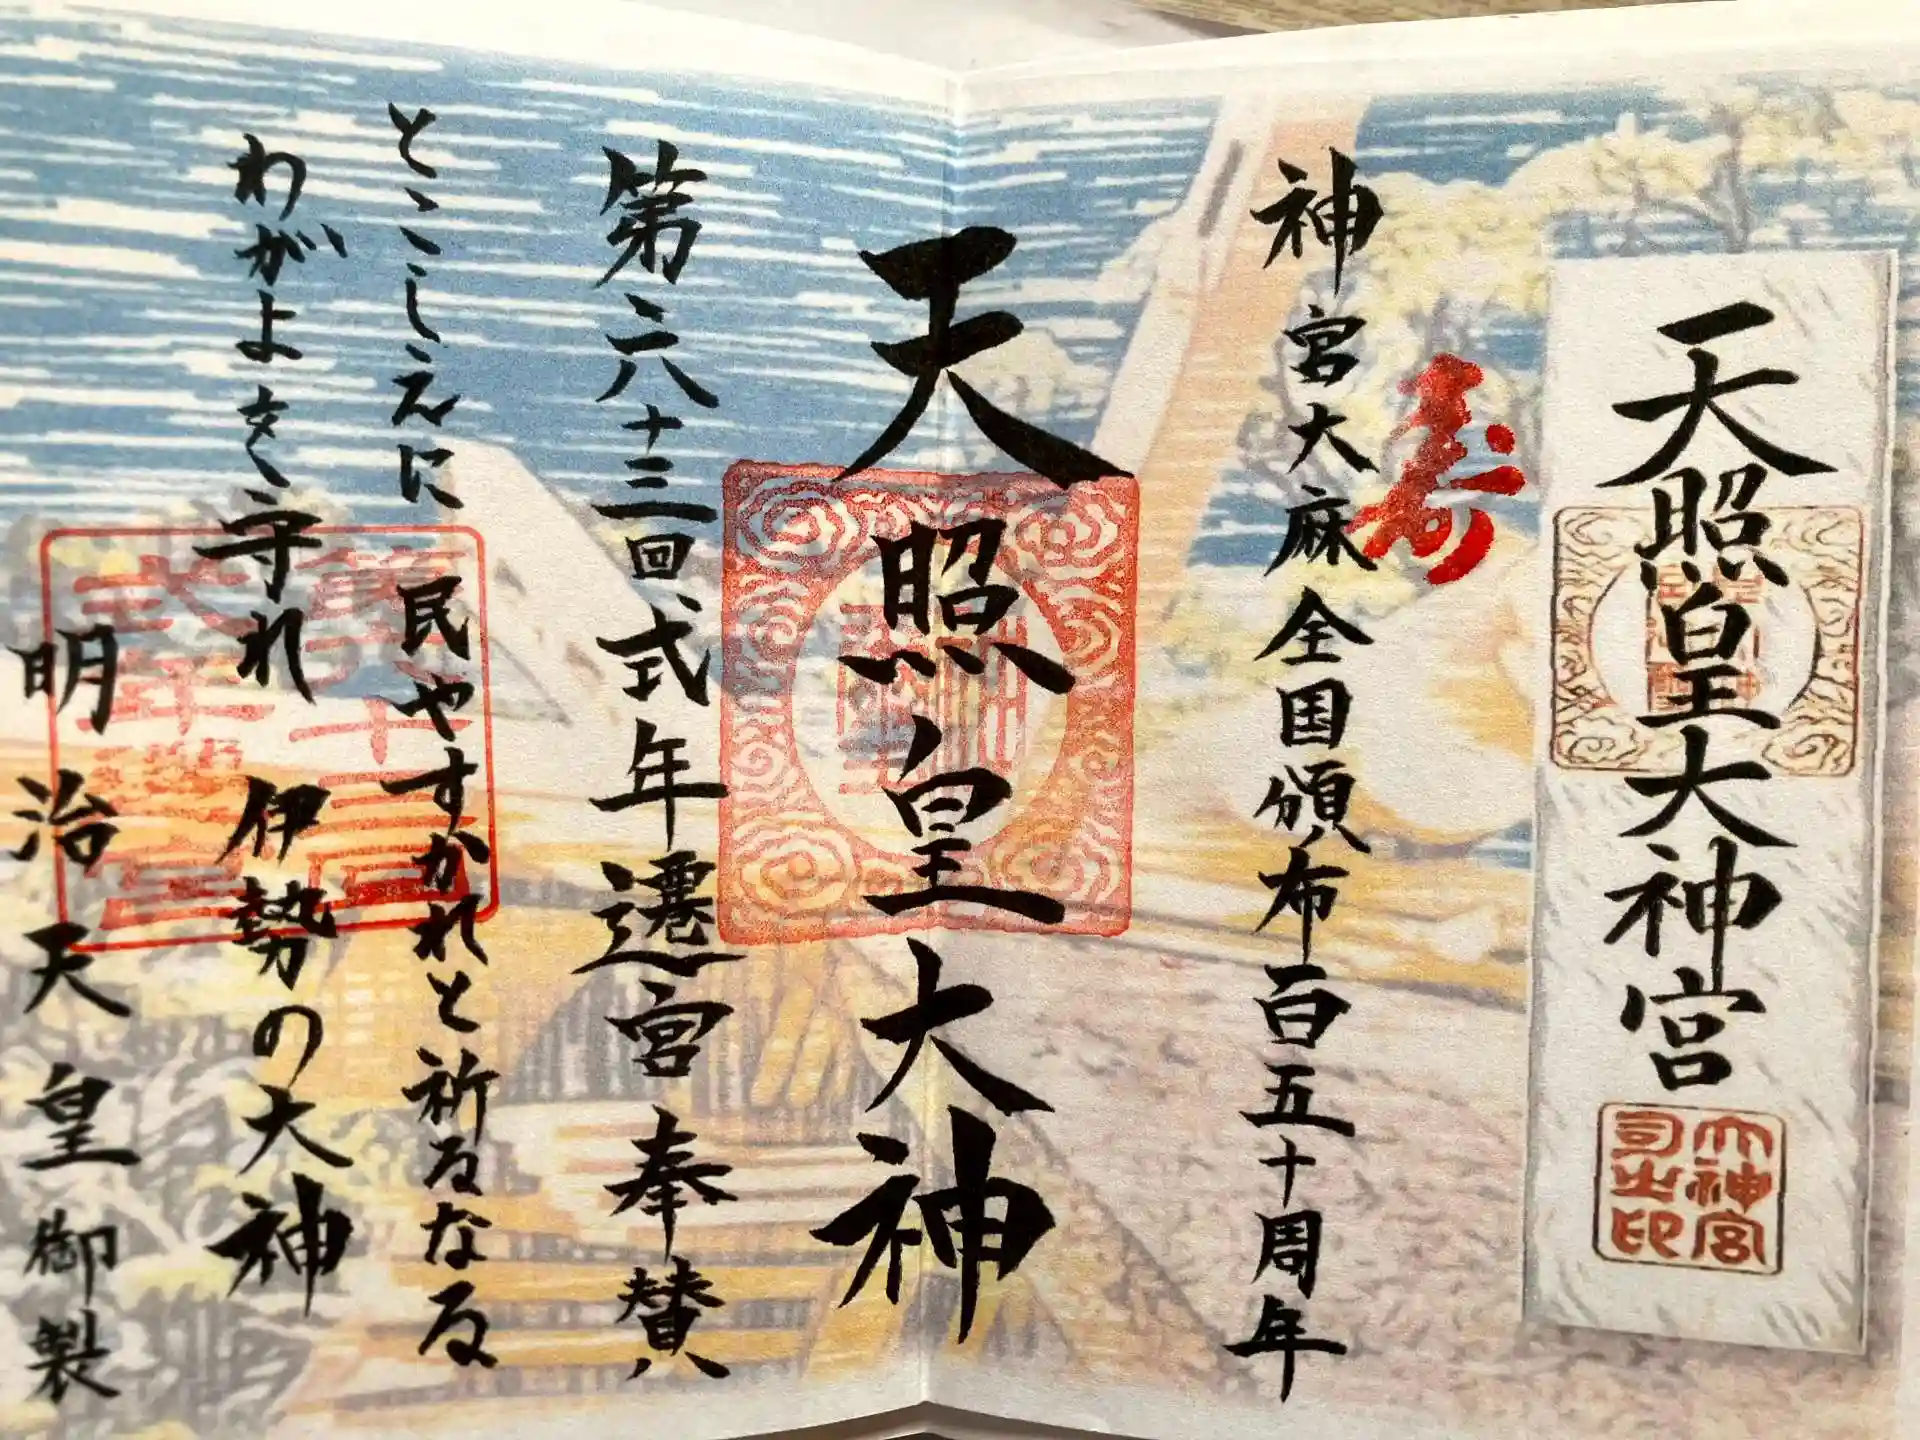 天照皇大神宮
大神宮司之印
寿
神宮大麻全国頒布百五十周年
天照皇大神
第六十三回式年遷宮奉賛
とこしえに民やすかれと祈るなる
わがよを守れ伊勢の大神
明治天皇御製
第六十三回
式年遷宮